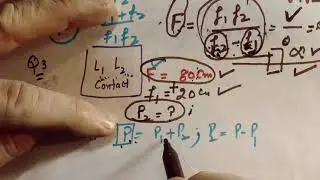 f₁ + f₂
f₁ f₂
F =
f₁ f₂
f₂ - f₁
0
Q3
L₁ L₂
Contact
F = 80 Cm
f₁ = +20 Cm
P₂ = ? ;
P = P₁ + P₂ ; P₂ = P - P₁